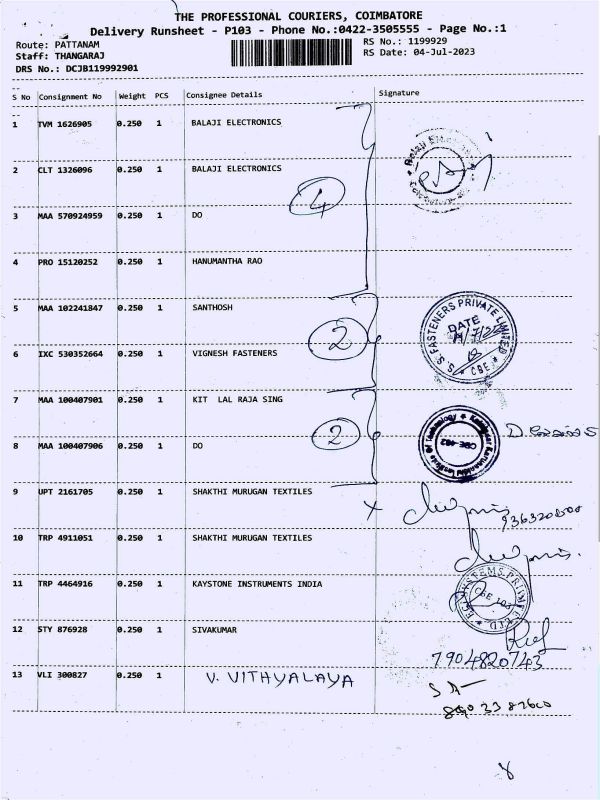 THE PROFESSIONAL COURIERS, COIMBATORE
Delivery Runsheet - P103 - Phone No.:0422-3505555 - Page No.:1
Route: PATTANAM
RS No.: 1199929
Staff: THANGARAJ
RS Date: 04-Jul-2023
DRS No.: DCJB119992901
S No Consignment No Weight PCS Consignee Details Signature
1 TVM 1626905 0.250 1 BALAJI ELECTRONICS
2 CLT 1326096 0.250 1 BALAJI ELECTRONICS
4
3 MAA 570924959 0.250 1 DO
4 PRO 15120252 0.250 1 HANUMANTHA RAO
5 MAA 102241847 0.250 1 SANTHOSH
S. FASTENERS PRIVATE LIMITED
DATE
CBE
2
6 IXC 530352664 0.250 1 VIGNESH FASTENERS
7 MAA 100407901 0.250 1 KIT LAL RAJA SING
2
8 MAA 100407906 0.250 1 DO
9 UPT 2161705 0.250 1 SHAKTHI MURUGAN TEXTILES
10 TRP 4911051 0.250 1 SHAKTHI MURUGAN TEXTILES
11 TRP 4464916 0.250 1 KAYSTONE INSTRUMENTS INDIA
CBE 103
12 STY 876928 0.250 1 SIVAKUMAR
7904820743
13 VLI 300827 0.250 1 V. VITHYALAYA